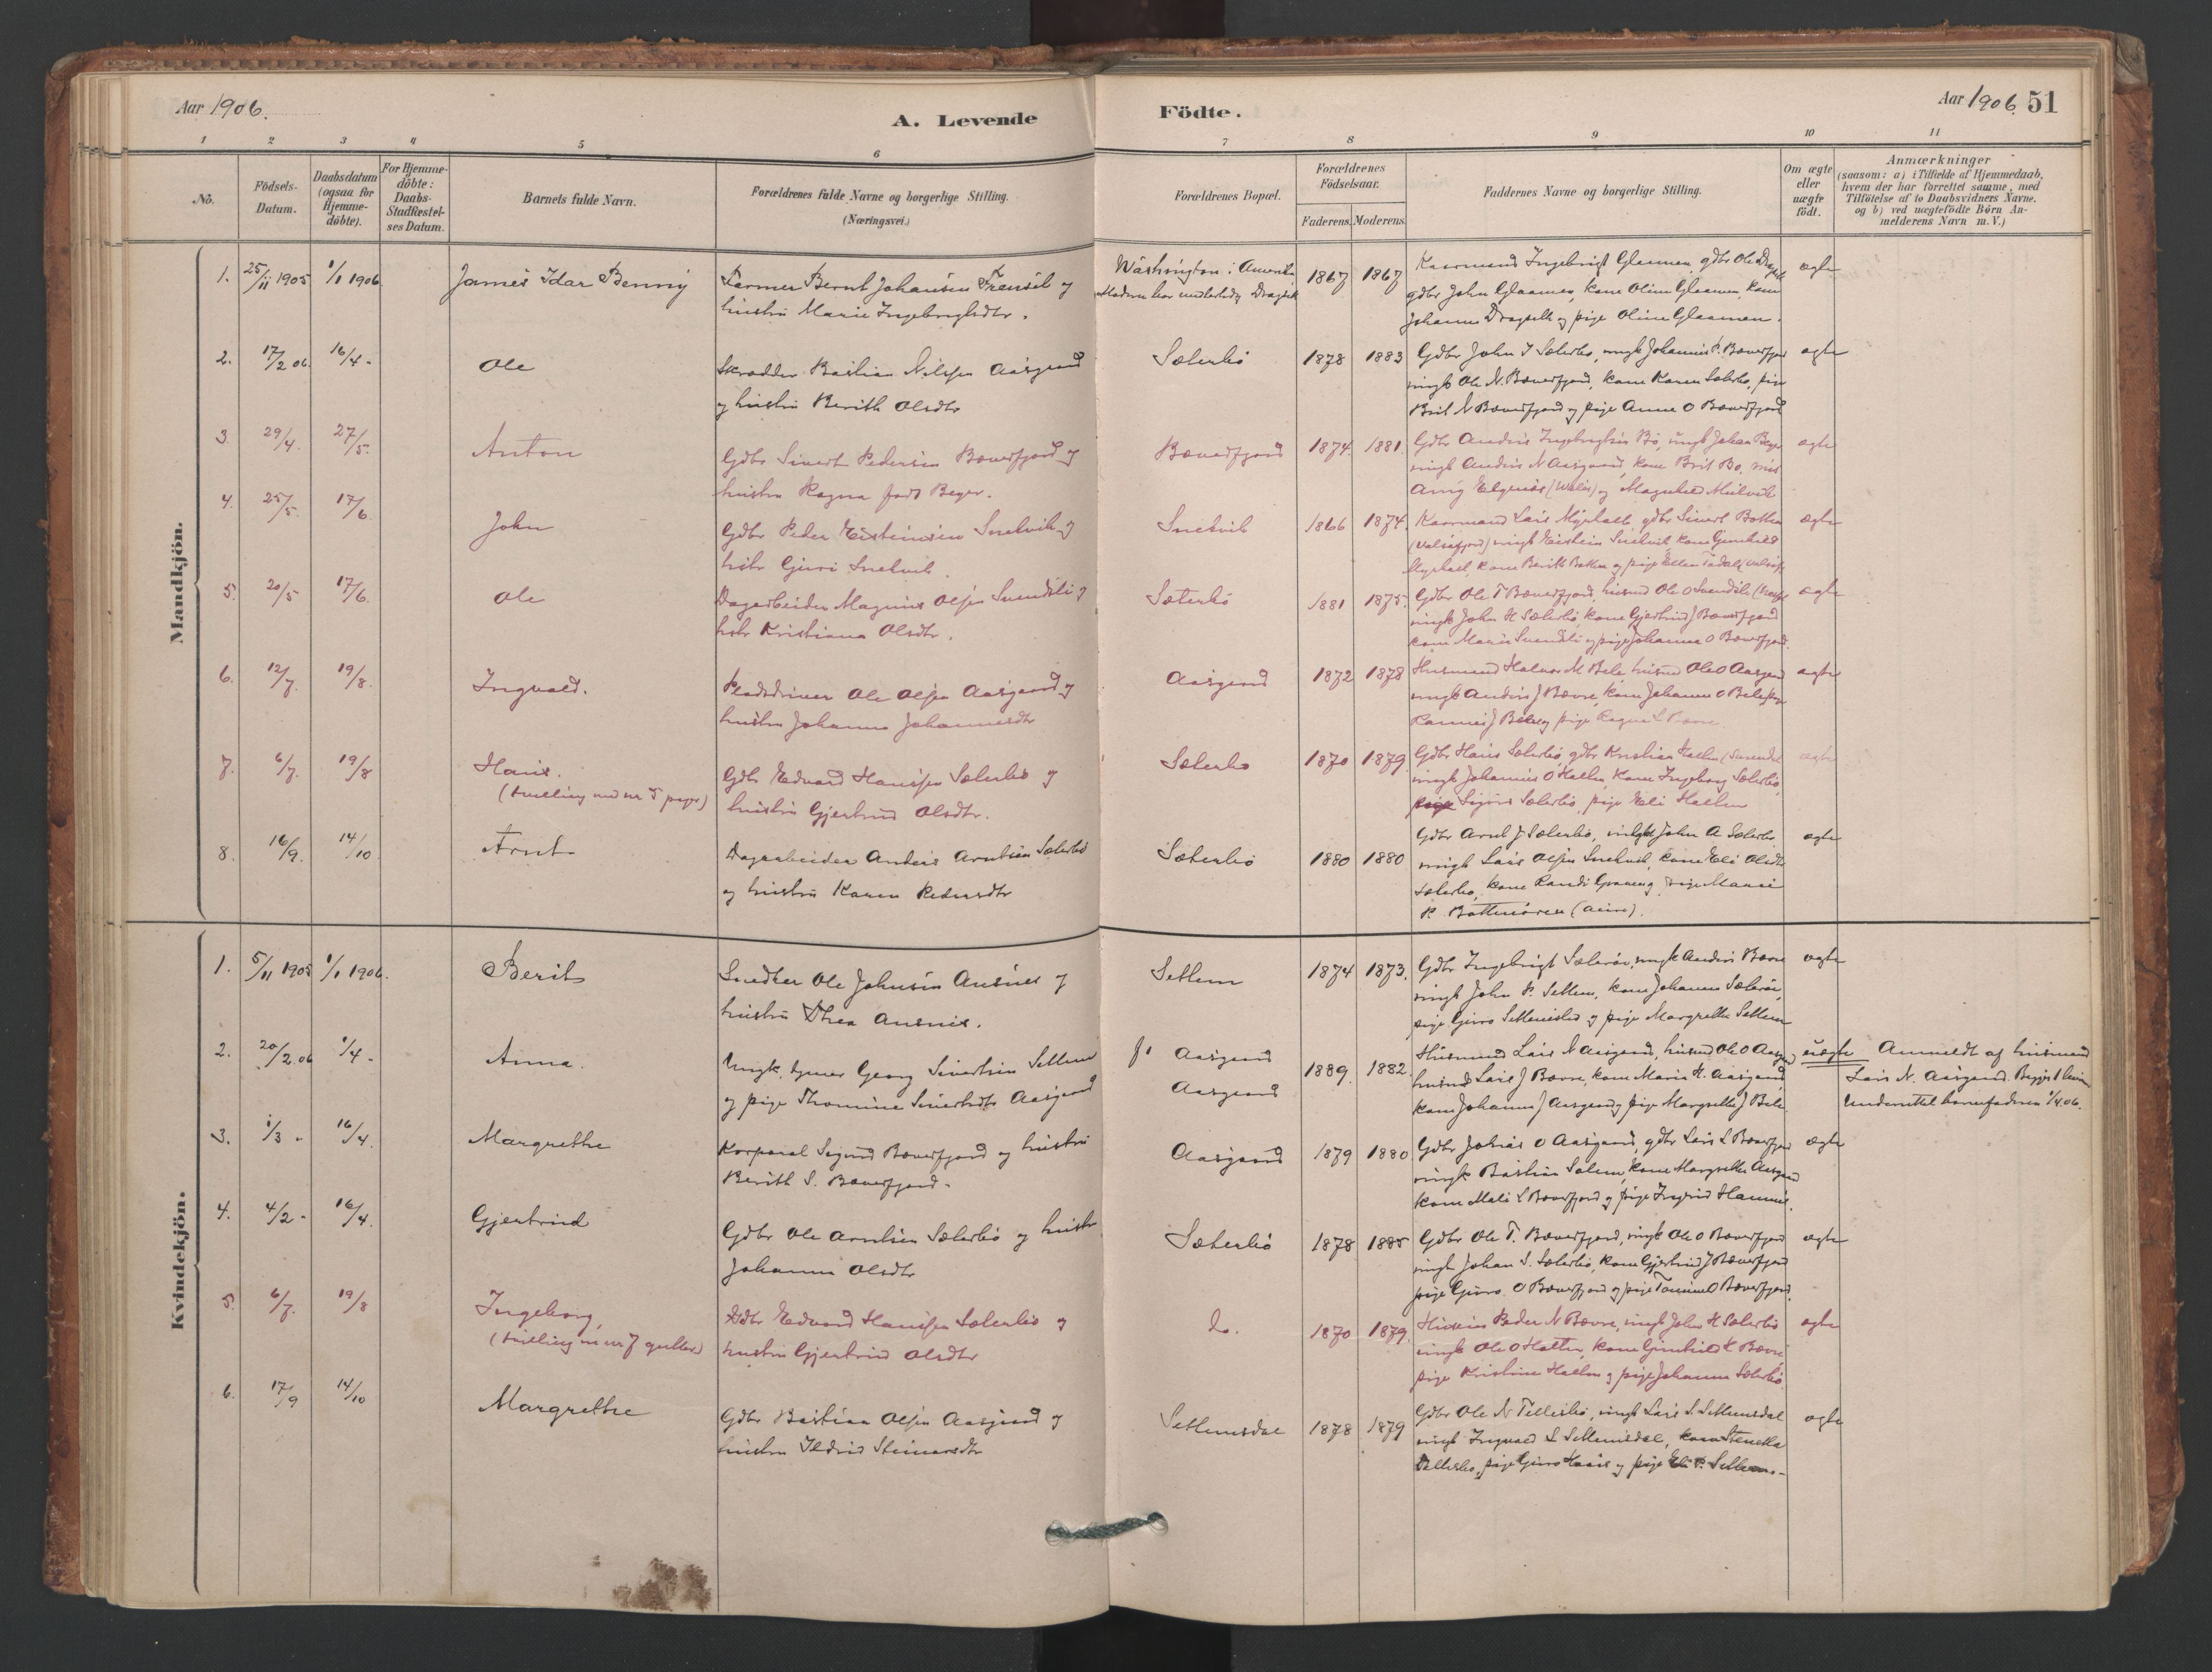 Aar 1906.
A. Levende
Födte.
Aar 1906. 51
1 2 3 4 5 6 7 8 9 10 11
No.
Födsels-
Datum.
Daabsdatum
(ogsaa for
Hjemme-
döbte).
For Hjemme-
döbte:
Daabs-
Stadfæstel-
ses Datum.
Barnets fulde Navn.
Forældrenes fulde Navne og borgerlige Stilling.
(Næringsvei.)
Forældrenes Bopæl.
Forældrenes
Födselsaar.
Faderens. Moderens.
Faddernes Navne og borgerlige Stilling.
Om ægte
eller
uægte
födt.
Anmærkninger
(saasom: a) i Tilfælde af Hjemmedaab,
hvem der har forrettet samme, med
Tilföielse af to Daabsvidners Navne.
og b) ved uægtefödte Börn An-
melderens Navn m.V.)
Mandkjön.
1. 25/11 1905 1/1 1906 James Idar Benny
Farmer Bernt Johansen og
hustru Marie Ingebrigtsdtr.
Washington i Amerika
1867 1867
Kaarmand Ingebrigt Glaamen, gdbr Ole
gdbr John Glaamen, kone Oline Glaamen, kone
Johanne og pige Oline Glaamen.
ægte
2. 17/2 06. 16/4 - Ole
Skrædder Bastian Nilsen Aasgaard
og hustru Berith Olsdtr
Sæterbö 1878 1883
Gdbr John J Sæterbö, ungk Johannes P. Bæverfjord
ungk Ole N. Bæverfjord, kone Karen Sæterbö, pige
Brit N Bæverfjord og pige Anne O Bæverfjord
ægte
3. 29/4. 27/5. Anton
Gdbr Sivert Pedersen Bæverfjord og
hustru Ragna født Beyer.
Bæverfjord 1874. 1881.
Gdbr Anders Ingebrigtsen Bö, ungk Johan Beyer
ungk Anders N Aasgaard, kone Brit Bö,
ægte
4. 25/5. 17/6. John
Gdbr Peder Eisteinsen Snekvik og
hstr Guri Snekvik.
Snekvik 1866 1874.
Kaarmand Lars, gdbr Sivert Botten
(Valsøfjord) ungk Eistein Snekvik, kone Gunhild
kone Berith Botten og pige Ellen
ægte
5. 20/5 17/6. Ole
Dagarbeider Magnus Olsen Svendsli og
hstr Kristiana Olsdtr.
Sæterbö 1881 1875.
Gdbr Ole T Bæverfjord, husmd Ole O Svendsli
ungk John H Sæterbö, kone Gjertrud J Bæverfjord
kone Marit Svendsli og pige Johanna O Bæverfjord.
ægte
6. 12/7. 19/8. Ingvald.
Pladsdriver Ole Olsen Aasgaard og
hustru Johanna Johannesdtr
Aasgaard 1872 1878
Husmand Halvor M Bele, husmd Ole O Aasgaard
ungk Anders J Bævre, kone Johanna O Bele, pige
J Bele og pige Ragna L Bævre
ægte
7. 6/7. 19/8 Hans.
(tvilling med nr 5 piger)
Gdbr Edvard Hanssen Sæterbö og
hustru Gjertrud Olsdtr.
Sæterbö 1870 1879.
Gdbr Hans Sæterbö, gdbr Kristian Hallen (Surendal
ungk Johannes O Hallen, kone Ingeborg Sæterbö,
pige Sigrid Sæterbö, pige Eli Hallen
ægte
8. 16/9. 14/10 Arnt
Dagarbeider Anders Arntsen Sæterbö
og hustru Karen Pedersdtr
Sæterbö 1880 1880
Gdbr Arnt J Sæterbö, ungk John A Sæterbö
ungk Lars Olsen Snekvik, kone Eli Olsdtr
Sæterbö, kone Randi og pige Marie
P. (Aure).
ægte
Kvindekjön.
1. 5/11 1905 1/1 1906. Berit
Snedker Ole Johnsen Ansnes og
hustru Thea Ansnes.
Settem 1874 1873.
Gdbr Ingebrigt, ungk Anders Bævre
ungk John P. Settem, kone Johanna
pige Guro og pige Margrethe Settem
ægte
2. 20/2 06 1/4 - Anna.
Ungk. Georg Sivertsen Settem
og pige Thomine Sivertsdtr Aasgaard
Aasgaard
Aasgaard
1889. 1882.
Husmand Lars N Aasgaard, husmd Ole O Aasgaard
husmd Lars J Bævre, kone Maria H. Aasgaard
kone Johanna J Aasgaard og pige Margrethe J Bele
uægte
Anmeldt af husmand
Lars N. Aasgaard. Begges 1 leierm
Underrettet barnefaderen 1/4 06.
3. 1/3 - 16/4. Margrethe
Korporal Sivert Bæverfjord og hustru
Berith S. Bæverfjord.
Aasgaard 1879 1880
Gdbr Johan O Aasgaard, gdbr Lars L Bæverfjord
ungk Bastian, kone Margrethe Aasgaard
kone Mali L Bæverfjord og pige Ingrid
ægte
4. 4/2 - 16/4. Gjertrud
Gdbr Ole Arntsen Sæterbö og hustr
Johanna Olsdtr
Sæterbö 1878 1885
Gdbr Ole T. Bæverfjord, ungk Ole O Bæverfjord
ungk Johan S. Sæterbö, kone Gjertrud J Bæverfjord
pige Guro O Bæverfjord og pige O Bæverfjord.
ægte
5. 6/7. 19/8 Ingeborg,
(tvilling m nr 7 gutter)
Gdbr Edvard Hanssen Sæterbö og
hustru Gjertrud Olsdtr
Do. 1870 1879.
Peder N Bævre, ungk John H Sæterbö
ungk Ole O Hallen, kone Gunhild K Bævre,
pige Kristine Hallen og pige Johanna Sæterbö.
ægte
6. 17/9 14/10 Margrethe
Gdbr Bastian Olsen Aasgaard og
hustru Ildrid Steinarsdtr
Settemsdal 1878 1879
Gdbr Ole N Tellesbö, ungk Lars S. Settemsdal
ungk Ingvald L Settemsdal, kone
Tellesbö, pige Guro og pige Eli P. Settem.-
ægte